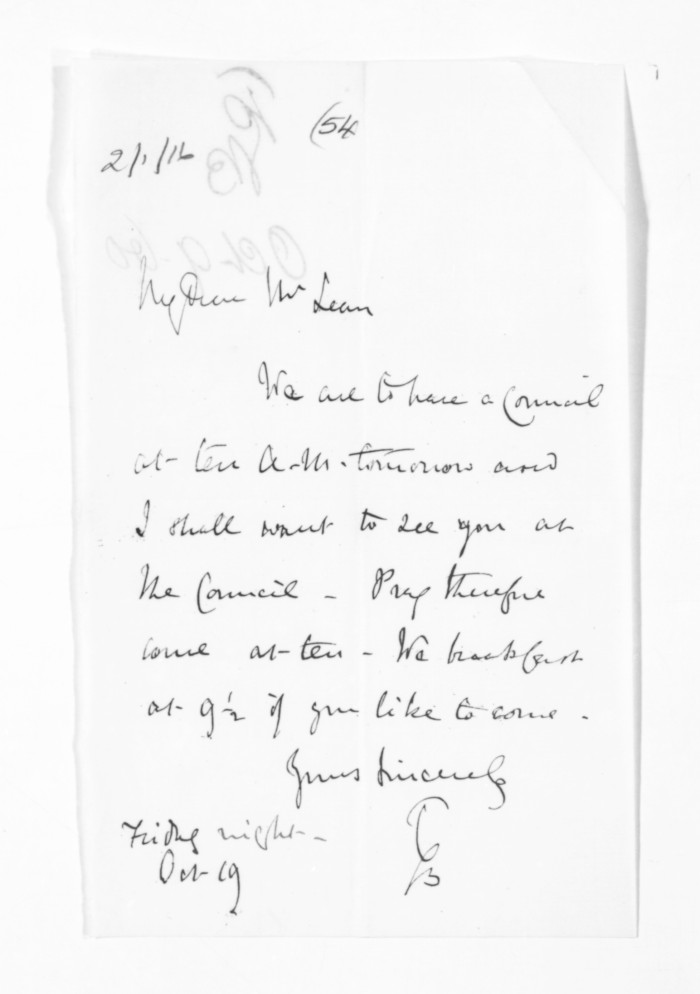 (54
2/1/16
My Dear Mr Lean
We are to have a Council
at ten A.M. tomorrow and
I shall want to see you at
the Council - Pray therefore
come at ten - We breakfast
at 9½ if you like to come -
Yours Sincerely
TGB
Friday night -
Oct 19